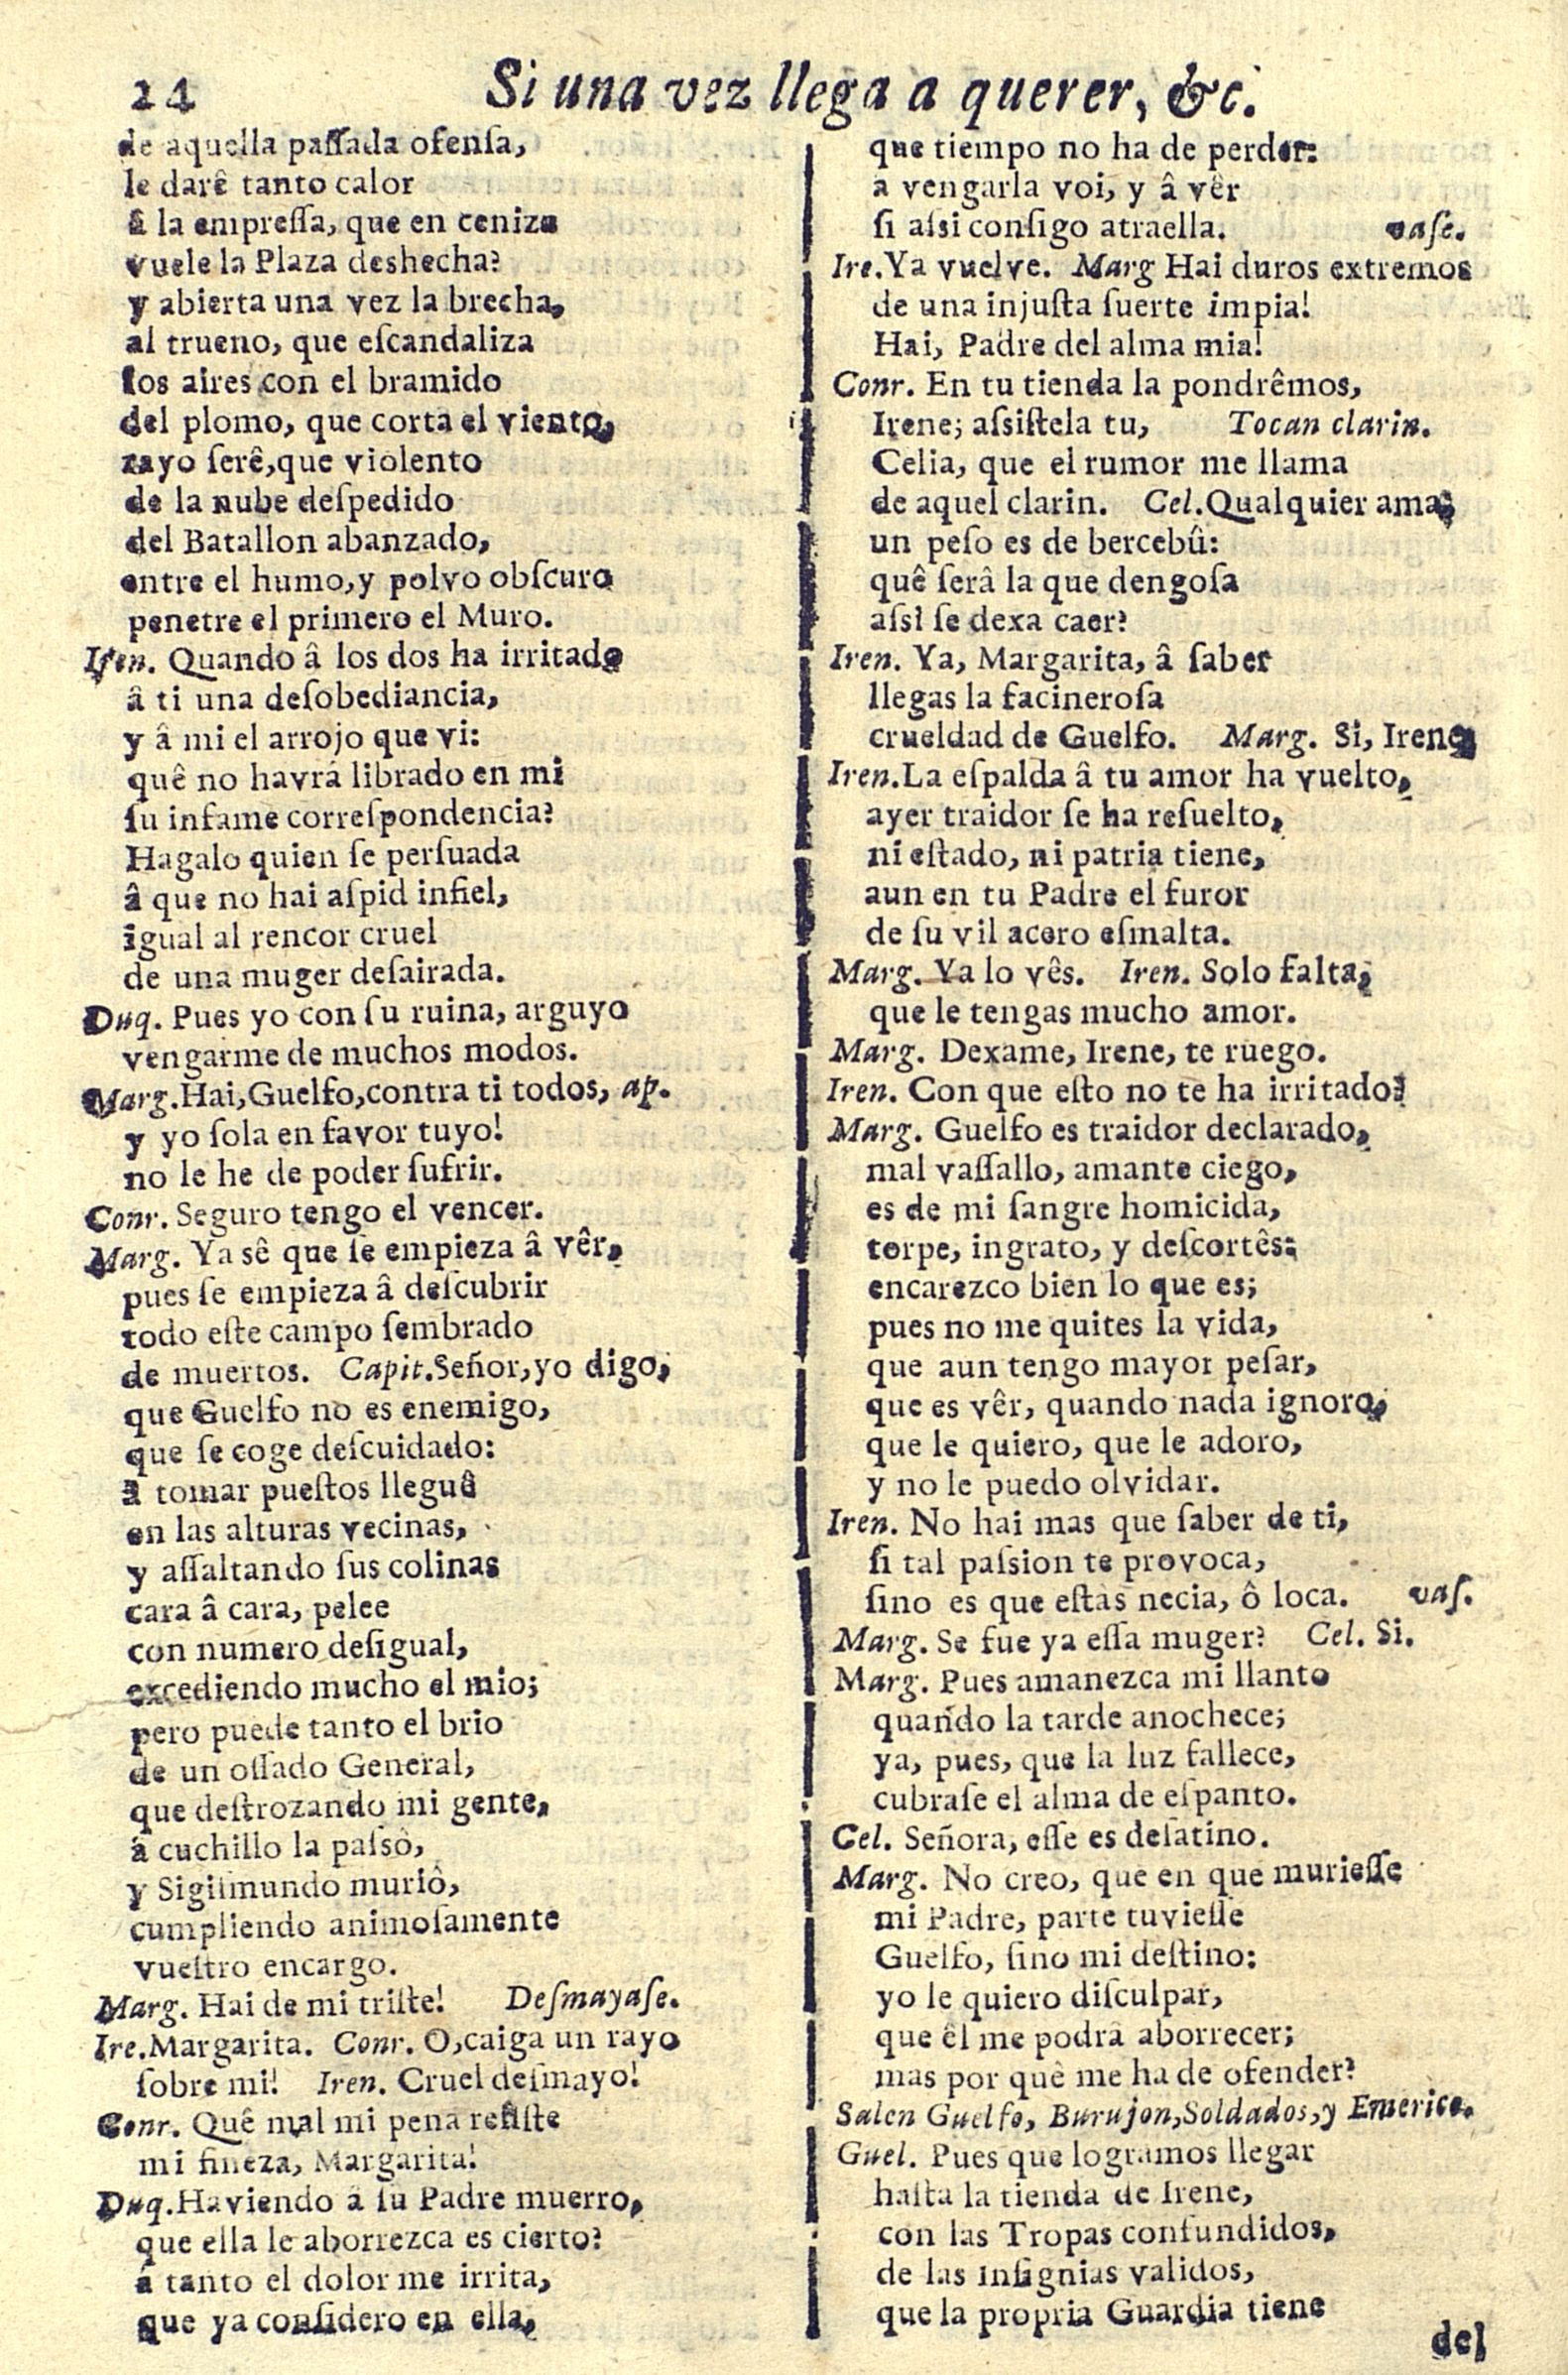 24 Si una vez llega a querer, &c.
de aquella paſſada ofenſa,
le darê tanto calor
â la empreſſa, que en ceniza
vuele la Plaza deshecha?
y abierta una vez la brecha,
al trueno, que eſcandaliza
los aires con el bramido
del plomo, que corta el viento,
rayo ſerê, que violento
de la nube deſpedido
del Batallon abanzado,
entre el humo, y polvo obſcuro
penetre el primero el Muro.
Iren. Quando â los dos ha irritado
â ti una deſobediancia,
y â mi el arrojo que vi:
quê no havrá librado en mi
ſu infame correſpondencia?
Hagalo quien ſe perſuada
â que no hai aſpid infiel,
igual al rencor cruel
de una muger deſairada.
Duq. Pues yo con ſu ruina, arguyo
vengarme de muchos modos.
Marg. Hai, Guelfo, contra ti todos, ap.
y yo ſola en favor tuyo!
no le he de poder ſufrir.
Conr. Seguro tengo el vencer.
Marg. Ya sê que ſe empieza â vêr,
pues ſe empieza â deſcubrir
todo eſte campo ſembrado
de muertos. Capit. Señor, yo digo,
que Guelfo no es enemigo,
que ſe coge deſcuidado:
â tomar pueſtos lleguê
en las alturas vecinas,
y aſſaltando ſus colinas
cara â cara, pelee
con numero deſigual,
excediendo mucho el mio;
pero puede tanto el brio
de un oſſado General,
que deſtrozando mi gente,
â cuchillo la paſsô,
y Sigiſmundo muriô,
cumpliendo animoſamente
vueſtro encargo.
Marg. Hai de mi triſte! Deſmayaſe.
Ire. Margarita. Conr. O, caiga un rayo
ſobre mi! Iren. Cruel deſmayo!
Conr. Quê mal mi pena reſiſte
mi fineza, Margarita!
Duq. Haviendo â ſu Padre muerro,
que ella le aborrezca es cierto?
â tanto el dolor me irrita,
que ya conſidero en ella,
que tiempo no ha de perder:
a vengarla voi, y â vêr
ſi aſsi conſigo atraella. vaſe.
Ire. Ya vuelve. Marg Hai duros extremos
de una injuſta ſuerte impia!
Hai, Padre del alma mia!
Conr. En tu tienda la pondrêmos,
Irene; aſsiſtela tu, Tocan clarin.
Celia, que el rumor me llama
de aquel clarin. Cel. Qualquier ama,
un peſo es de bercebû:
quê ſerâ la que dengoſa
aſsi ſe dexa caer?
Iren. Ya, Margarita, â ſaber
llegas la facineroſa
crueldad de Guelfo. Marg. Si, Irene,
Iren. La eſpalda â tu amor ha vuelto,
ayer traidor ſe ha reſuelto,
ni eſtado, ni patria tiene,
aun en tu Padre el furor
de ſu vil acero eſmalta.
Marg. Ya lo vês. Iren. Solo falta,
que le tengas mucho amor.
Marg. Dexame, Irene, te ruego.
Iren. Con que eſto no te ha irritado?
Marg. Guelfo es traidor declarado,
mal vaſſallo, amante ciego,
es de mi ſangre homicida,
torpe, ingrato, y deſcortês:
encarezco bien lo que es;
pues no me quites la vida,
que aun tengo mayor peſar,
que es vêr, quando nada ignoro,
que le quiero, que le adoro,
y no le puedo olvidar.
Iren. No hai mas que ſaber de ti,
ſi tal paſsion te provoca,
ſino es que eſtàs necia, ô loca. vaſ.
Marg. Se fue ya eſſa muger? Cel. Si.
Marg. Pues amanezca mi llanto
quando la tarde anochece;
ya, pues, que la luz fallece,
cubraſe el alma de eſpanto.
Cel. Señora, eſſe es deſatino.
Marg. No creo, que en que murieſſe
mi Padre, parte tuvieſſe
Guelfo, ſino mi deſtino:
yo le quiero diſculpar,
que êl me podrâ aborrecer;
mas por quê me ha de ofender?
Salen Guelfo, Burujon, Soldados, y Emerico.
Guel. Pues que logramos llegar
haſta la tienda de Irene,
con las Tropas confundidos,
de las Inſignias validos,
que la propria Guardia tiene
del